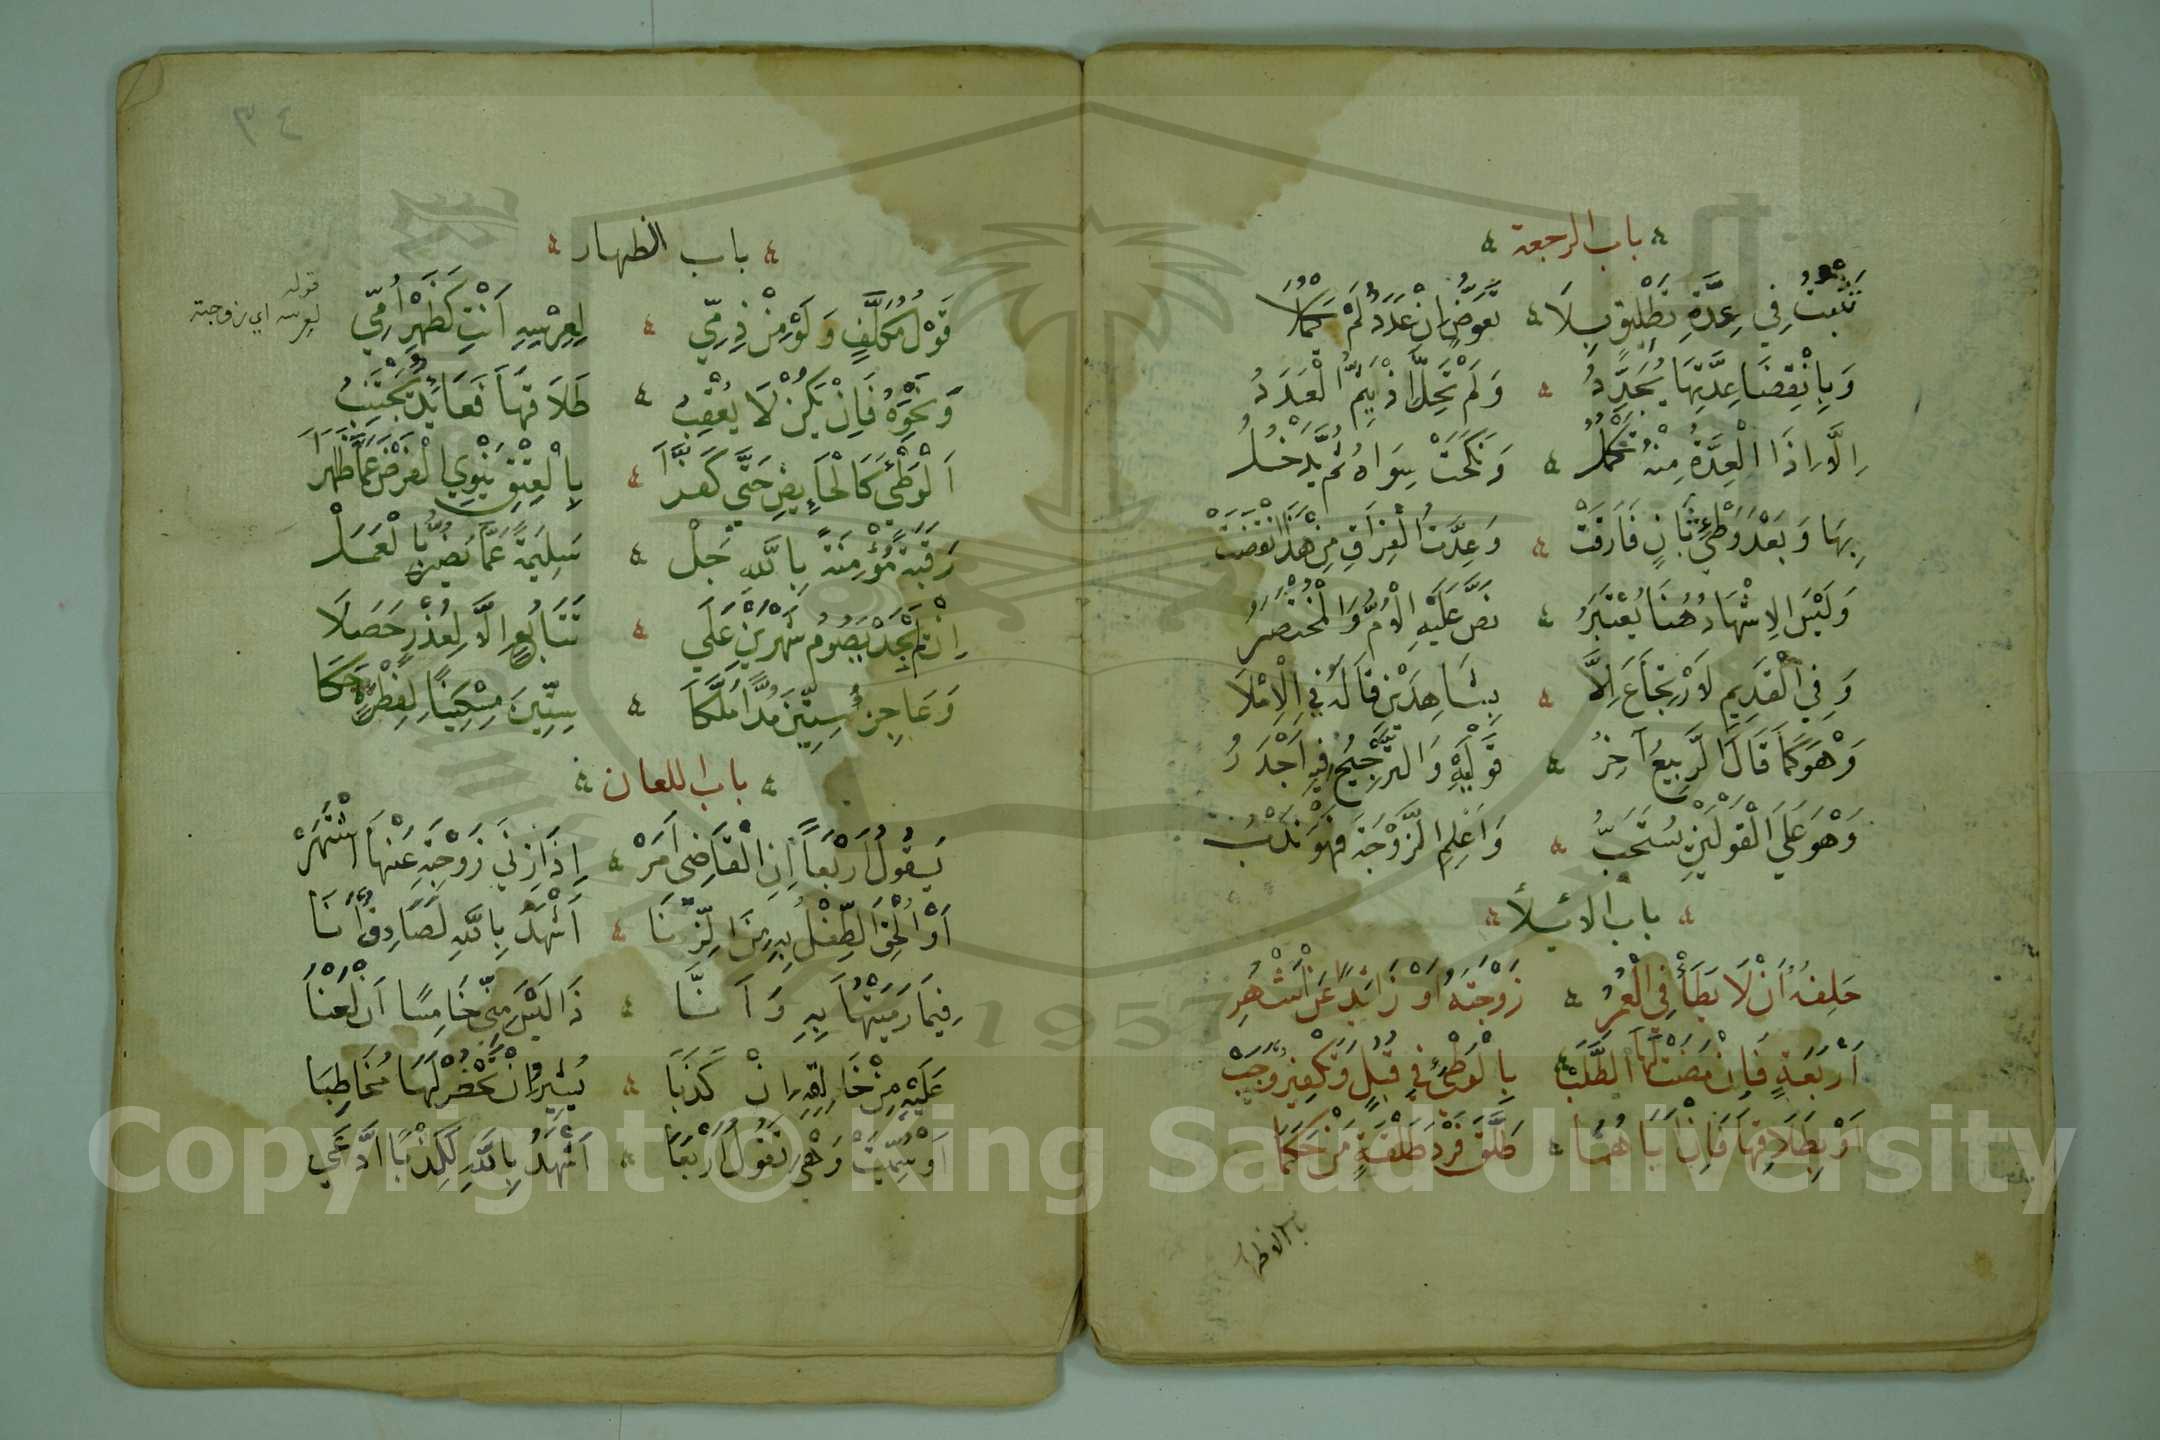 باب الرجعة
تَثْبُتُ فِي عِدَّةِ تَطْلِيقٍ بِلَا تَعَوُّضٍ اِنْ عَدَدٌ لَمْ يَكْمُلَا
وَبِانْقِضَا عِدَّتِهَا يُجَدِّدُ وَلَمْ تَحِلَّ اِذْ يَتِمُّ الْعَدَدُ
اِلَّا اِذَا الْعِدَّةُ مِنْهُ تَكْمُلُ وَنَكَحَتْ سِوَاهُ ثُمَّ يَدْخُلُ
بِهَا وَبَعْدَ وَطْئِ ثَانٍ فَارَقَتْ وَعِدَّتُ الْفِرَاقِ مِنْ هَذَا انْقَضَتْ
وَلَيْسَ الِاشْهَادُ هُنَا يُعْتَبَرُ نَصَّ عَلَيْهِ الْاُمُّ وَالْمُخْتَصَرُ
وَفِي الْقَدِيمِ لَا رْتِجَاعَ اِلَّا بِشَاهِدَيْنِ قَالَهُ فِي الْاِمْلَا
وَهْوَ كَمَا قَالَ الرَّبِيعُ آخِرُ قَوْلَيْهِ وَالتَّرْجِيحُ فِيهِ اَجْدَرُ
وَهْوَ عَلَي الْقَوْلَيْنِ يُسْتَحَبُّ وَاَعْلِمِ الزَّوْجَةَ فَهْوَ نَدْبُ
باب الائيلأ
حَلِفُهُ اَنْ لَا يَطَأْ فِي الْعُمْرِ زَوْجَتَهُ اَوْ زَائِدًا عَنْ اَشْهُرِ
اَرْبَعَةٍ فَاِنْ مَضَتْ لَهَا الطَّلَبْ بِالْوَطْئِ فِي قُبُلٍ وَتَكْفِيرٍ وَجَبْ
اَوْ بِطَلَاقِهَا فَاِنْ اَبَاهُمَا طَلَّقَ فَرْدَ طَلْقَةٍ مَنْ حَكَمَا
باب الظهار
باب الظهار
قَوْلُ مُكَلَّفٍ وَلَوْ مِنْ ذِمِّي لِعِرْسِهِ اَنْتِ كَظَهْرِ اُمِّي
قوله
لعرسه اي زوجته
وَنَحْوِهِ فَاِنْ يَكُنْ لَا يُعْقِبُ طَلَاقَهَا فَعَائِدٌ يَجْتَنِبُ
اَلْوَطْئَ كَالْحَائِضِ حَتَّي كَفَّرَا بِالْعِتْقِ يَنْوِي الْفَرْضَ عَمَّا ظَاهَرَا
رَقَبَةً مُؤْمِنَةً بِاللهِ جَلْ سَلِيمَةً عَمَّا يَضُرُّ بِالْعَمَلْ
اِنْ لَمْ يَجِدْ يَصُومُ شَهْرَيْنِ عَلَي تَتَابُعٍ اِلَّا لِعُذْرٍ حَصَلَا
وَعَاجِزٌ سِتِّينَ مُدًّا مَلَّكَا سِتِّينَ مِسْكِينًا لِفِطْرَةٍ حَكَا
باب اللعان
يَقُولُ اَرْبَعًا اِنِ الْقَاضِي اَمَرْ اِذَا زِنَي زَوْجَةٍ عَنْهَا اشْتَهَرْ
اَوْ اُلْحِقَ الطِّفْلُ بِهِ مِنَ الزِّنَا اَشْهَدُ بِاللهِ لَصَادِقٌ اَنَا
فِيمَا رَمَيْتُهَا بِهِ وَاَنَّا ذَا لَيْسَ مِنِّي خَامِسًا اَنْ لَعْنَا
عَلَيْهِ مِنْ خَالِقِهِ اِنْ كَذَبَا يُشِيرُ اِنْ تَحْضُرْ لَهَا مُخَاطِبَا
اَوْ سُمِّيَتْ وَهْيَ تَقُولُ اَرْبَعَا اَشْهَدُ بِاللهِ لَكِذْبًا ادَّعَي
Copyright © King Saud University
1957